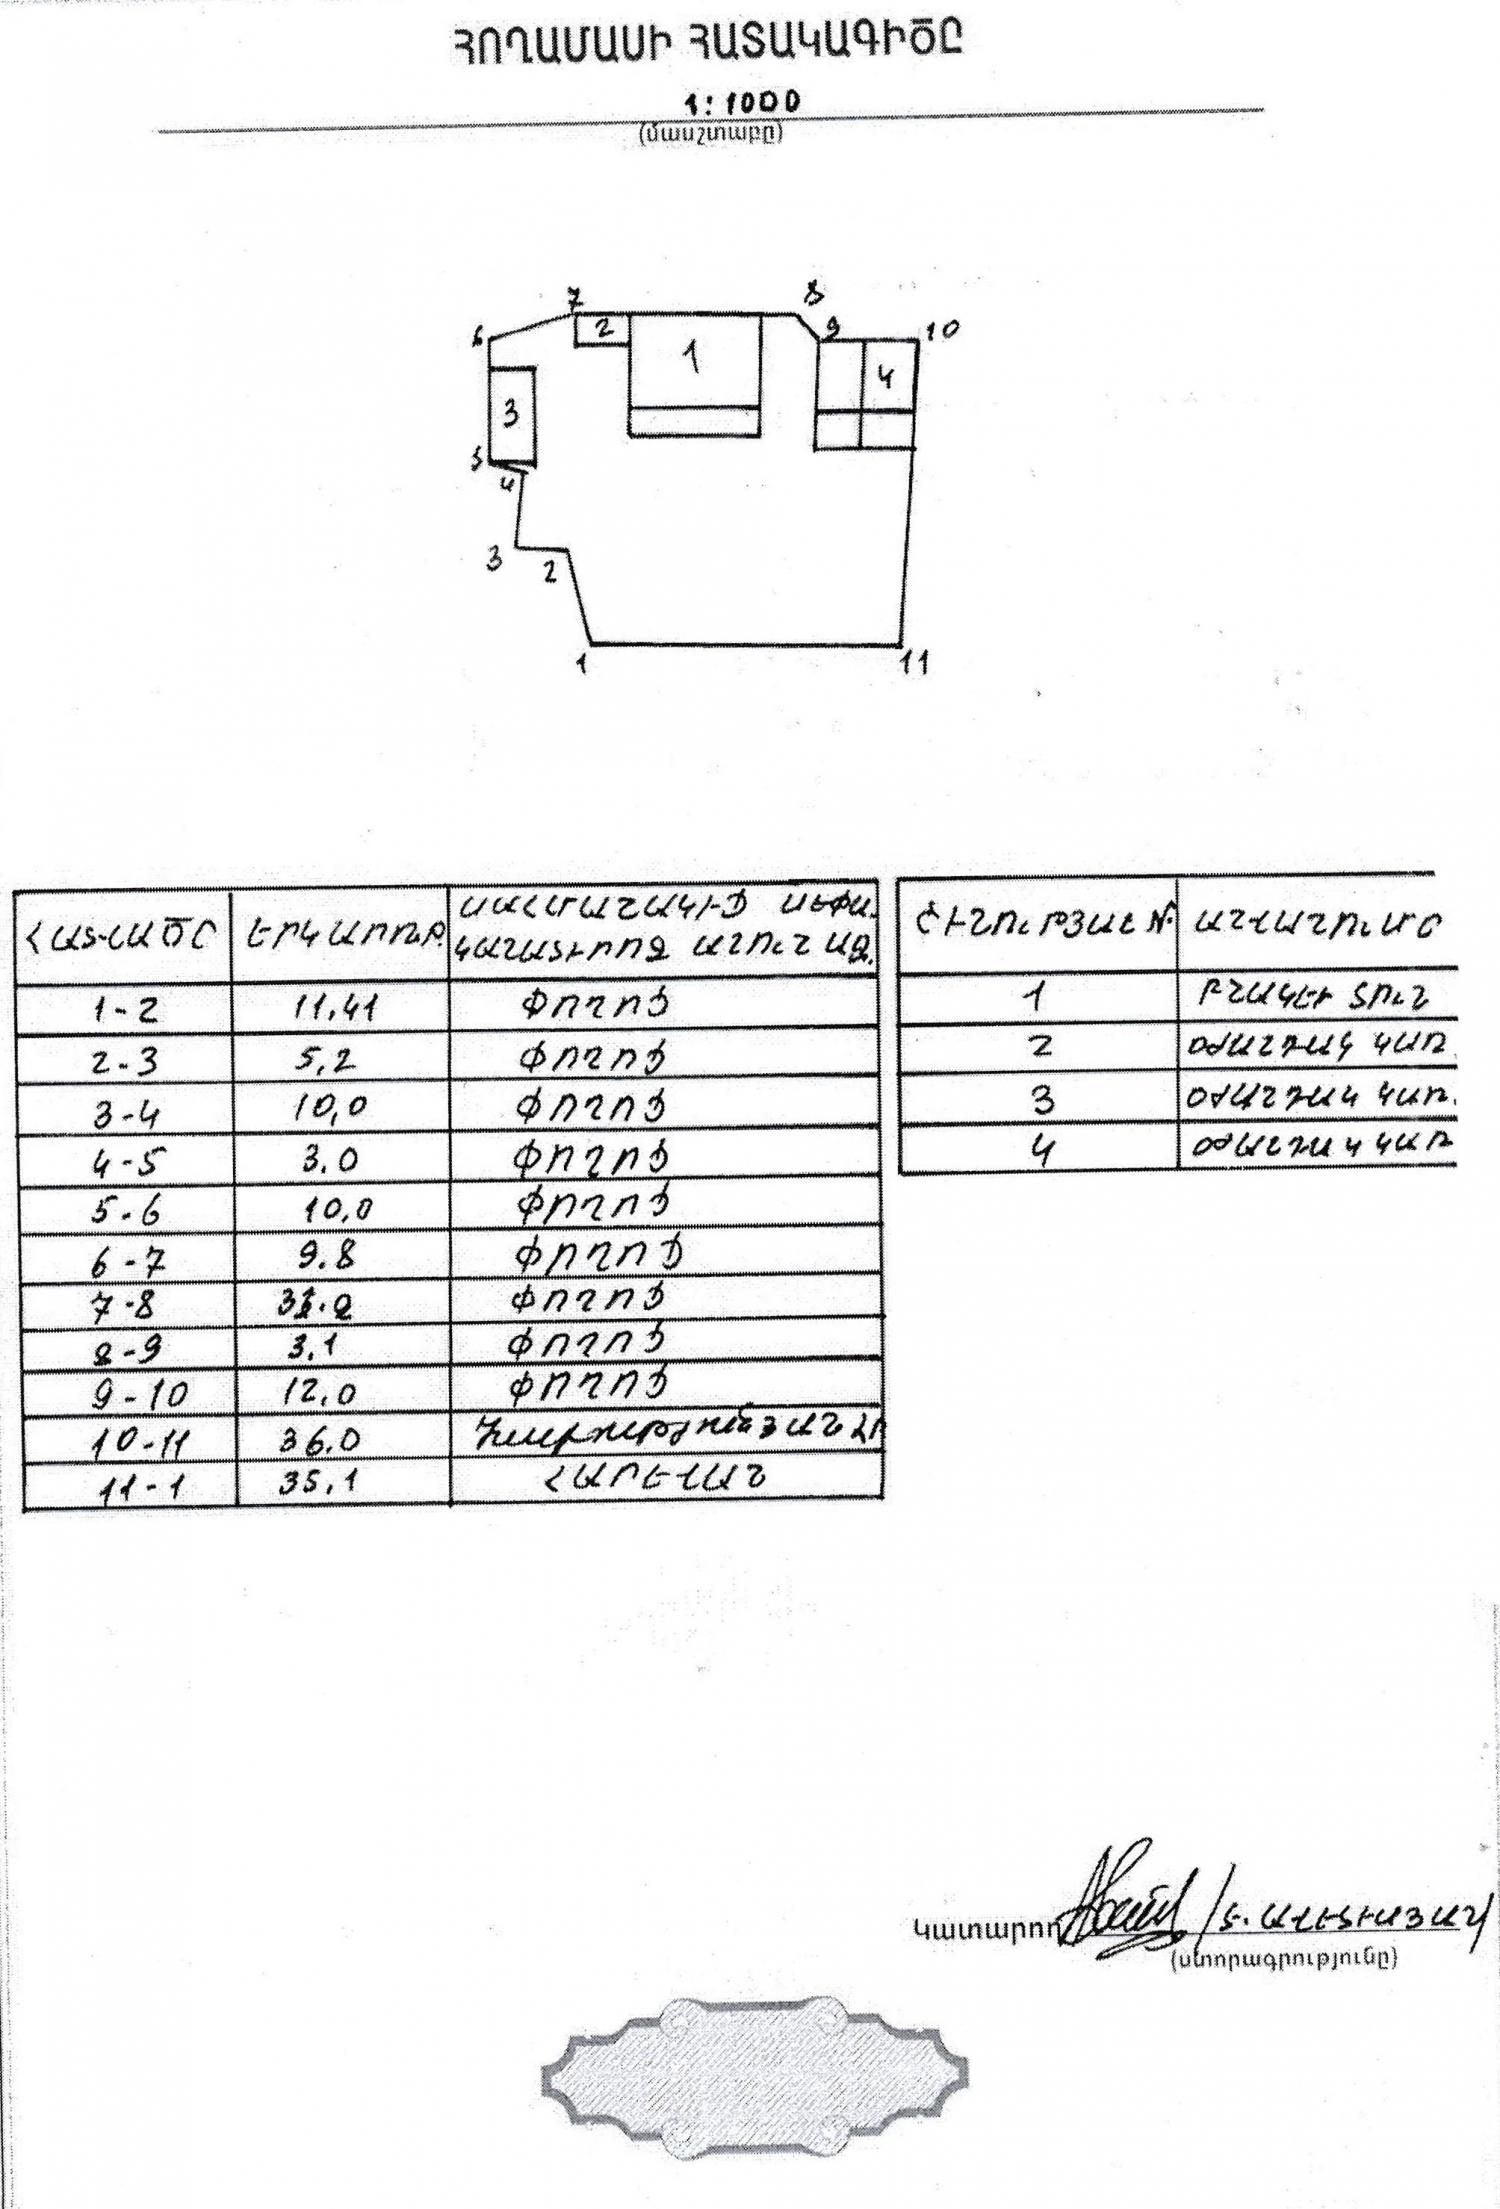 ՀՈՂԱՄԱՍԻ ՀԱՏԱԿԱԳԻԾԸ
1:1000
(մասշտաբը)
7 8
6 2 9 10
1 4
3
5
4
3 2
1 11
ՀԱՏՎԱԾԸ ԵՐԿԱՐՈՒԹ. ՍԱՀՄԱՆԱԿԻՑ ՍԵՓԱ.
ԿԱՆԱՏԻՐՈՋ ԱՆՈՒՆ ԱԶ.
1-2 11,41 ՓՈՂՈՑ
2-3 5,2 ՓՈՂՈՑ
3-4 10,0 ՓՈՂՈՑ
4-5 3.0 ՓՈՂՈՑ
5-6 10,0 ՓՈՂՈՑ
6-7 9.8 ՓՈՂՈՑ
7-8 ՓՈՂՈՑ
8-9 3,1 ՓՈՂՈՑ
9-10 12,0 ՓՈՂՈՑ
10-11 36.0
11-1 35,1 ՀԱՐԵՎԱՆ
ՇԻՆՈՒԹՅԱՆ № ԱՆՎԱՆՈՒՄԸ
1 ԲՆԱԿԵԼԻ ՏՈՒՆ
2 ՕԺԱՆԴԱԿ ԿԱՌ
3 ՕԺԱՆԴԱԿ ԿԱՌ.
4 ՕԺԱՆԴԱԿ ԿԱՌ
Կատարող
(ստորագրությունը)